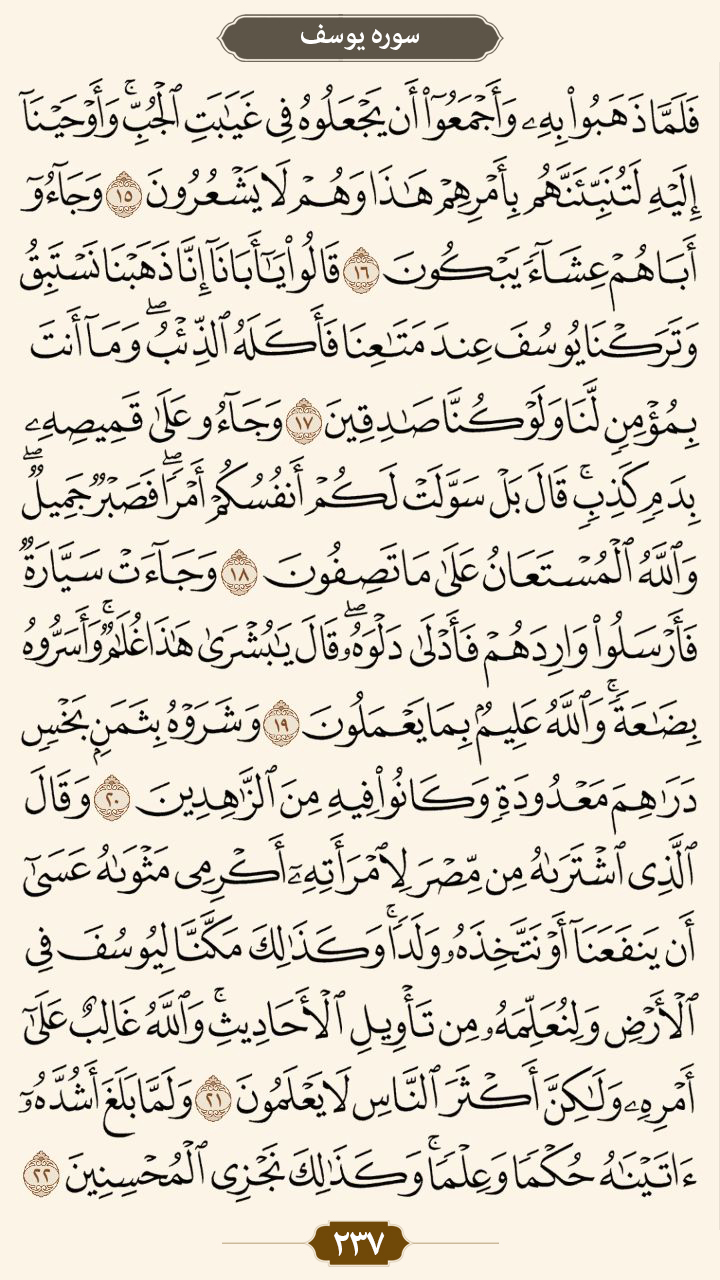 سوره یوسف
فَلَمَّا ذَهَبُوا۟ بِهِۦ وَأَجْمَعُوٓا۟ أَن يَجْعَلُوهُ فِى غَيَـٰبَتِ ٱلْجُبِّ ۚ وَأَوْحَيْنَآ
إِلَيْهِ لَتُنَبِّئَنَّهُم بِأَمْرِهِمْ هَـٰذَا وَهُمْ لَا يَشْعُرُونَ ١٥ وَجَآءُوٓ
أَبَاهُمْ عِشَآءً يَبْكُونَ ١٦ قَالُوا۟ يَـٰٓأَبَانَآ إِنَّا ذَهَبْنَا نَسْتَبِقُ
وَتَرَكْنَا يُوسُفَ عِندَ مَتَـٰعِنَا فَأَكَلَهُ ٱلذِّئْبُ ۖ وَمَآ أَنتَ
بِمُؤْمِنٍ لَّنَا وَلَوْ كُنَّا صَـٰدِقِينَ ١٧ وَجَآءُو عَلَىٰ قَمِيصِهِۦ
بِدَمٍ كَذِبٍ ۚ قَالَ بَلْ سَوَّلَتْ لَكُمْ أَنفُسُكُمْ أَمْرًا ۖ فَصَبْرٌ جَمِيلٌ ۖ
وَٱللَّهُ ٱلْمُسْتَعَانُ عَلَىٰ مَا تَصِفُونَ ١٨ وَجَآءَتْ سَيَّارَةٌ
فَأَرْسَلُوا۟ وَارِدَهُمْ فَأَدْلَىٰ دَلْوَهُۥ ۖ قَالَ يَـٰبُشْرَىٰ هَـٰذَا غُلَـٰمٌ ۚ وَأَسَرُّوهُ
بِضَـٰعَةً ۚ وَٱللَّهُ عَلِيمٌۢ بِمَا يَعْمَلُونَ ١٩ وَشَرَوْهُ بِثَمَنٍۭ بَخْسٍ
دَرَٰهِمَ مَعْدُودَةٍ وَكَانُوا۟ فِيهِ مِنَ ٱلزَّٰهِدِينَ ٢٠ وَقَالَ
ٱلَّذِى ٱشْتَرَىٰهُ مِن مِّصْرَ لِٱمْرَأَتِهِۦٓ أَكْرِمِى مَثْوَىٰهُ عَسَىٰٓ
أَن يَنفَعَنَآ أَوْ نَتَّخِذَهُۥ وَلَدًا ۚ وَكَذَٰلِكَ مَكَّنَّا لِيُوسُفَ فِى
ٱلْأَرْضِ وَلِنُعَلِّمَهُۥ مِن تَأْوِيلِ ٱلْأَحَادِيثِ ۚ وَٱللَّهُ غَالِبٌ عَلَىٰٓ
أَمْرِهِۦ وَلَـٰكِنَّ أَكْثَرَ ٱلنَّاسِ لَا يَعْلَمُونَ ٢١ وَلَمَّا بَلَغَ أَشُدَّهُۥٓ
ءَاتَيْنَـٰهُ حُكْمًا وَعِلْمًا ۚ وَكَذَٰلِكَ نَجْزِى ٱلْمُحْسِنِينَ ٢٢
٢٣٧